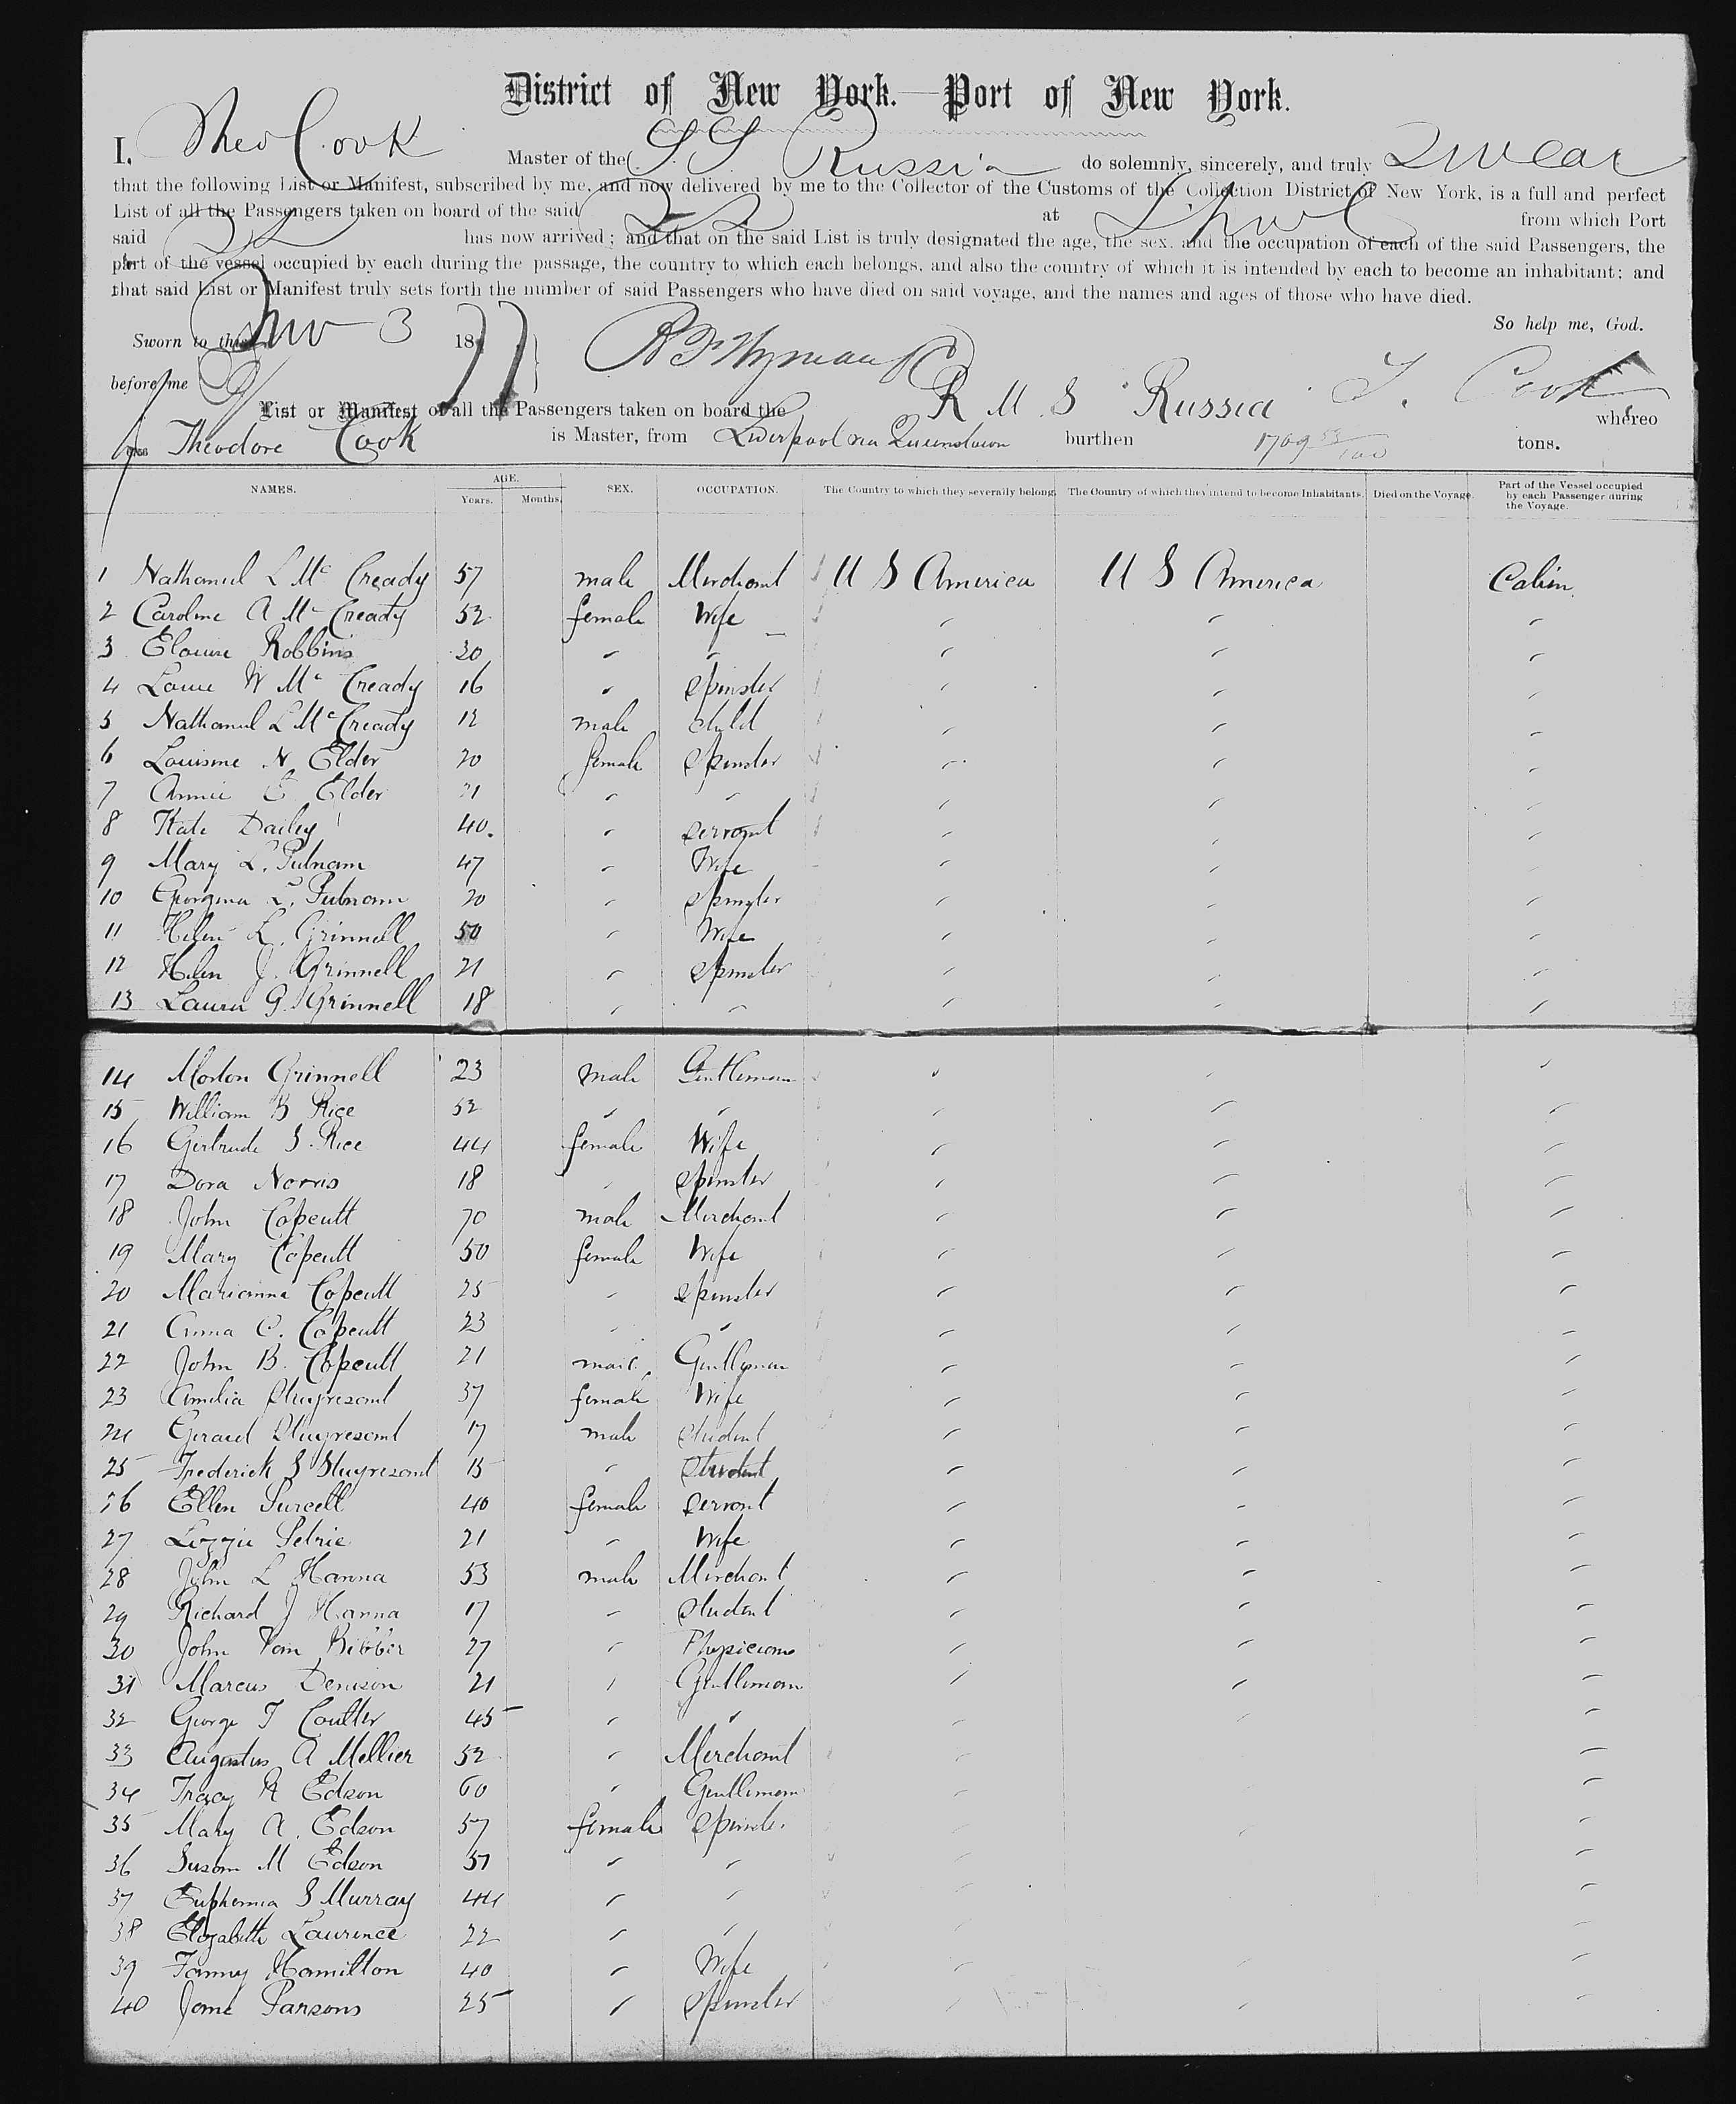 District of New York.—Port of New York.
I, Theo Cook Master of the SS Russia do solemnly, sincerely, and truly swear
that the following List or Manifest, subscribed by me, and now delivered by me to the Collector of the Customs of the Collection District of New York, is a full and perfect
List of all the Passengers taken on board of the said SS at L'pool from which Port
said SS has now arrived; and that on the said List is truly designated the age, the sex, and the occupation of each of the said Passengers, the
part of the vessel occupied by each during the passage, the country to which each belongs, and also the country of which it is intended by each to become an inhabitant; and
that said List or Manifest truly sets forth the number of said Passengers who have died on said voyage, and the names and ages of those who have died.
So help me, God.
Sworn to this Nov 3 1877
before me T. Cook
List or Manifest of all the Passengers taken on board the R M S Russia whereo
Theodore Cook is Master, from Liverpool via Queenstown burthen 1709 53/100 tons.
NAMES. AGE. Years. Months. SEX. OCCUPATION. The Country to which they severally belong. The Country of which they intend to become Inhabitants. Died on the Voyage. Part of the Vessel occupied by each Passenger during the Voyage.
1 Nathaniel L Mc Cready 57 male Merchant U S America U S America Cabin
2 Caroline A Mc Cready 52 female Wife " " "
3 Robbins 30 " " " " "
4 W Mc Cready 16 " Spinster " " "
5 Nathaniel L Mc Cready 12 male Child " " "
6 N. Elder 20 female Spinster " " "
7 Annie E Elder 21 " " " " "
8 Kate Dailey 40. " Servant " " "
9 Mary L. Putnam 47 " Wife " " "
10 Georgina L. Putnam 20 " Spinster " " "
11 Helen L. Grinnell 50 " Wife " " "
12 Helen J. Grinnell 21 " Spinster " " "
13 Laura G. Grinnell 18 " " " " "
14 Morton Grinnell 23 male Gentleman " " "
15 William B Rice 52 " " " " "
16 Gertrude S. Rice 44 female Wife " " "
17 Dora Norris 18 " Spinster " " "
18 John Copcutt 70 male Merchant " " "
19 Mary Copcutt 50 female Wife " " "
20 Marianna Copcutt 25 " Spinster " " "
21 Anna C. Copcutt 23 " " " " "
22 John B. Copcutt 21 male Gentleman " " "
23 Amelia Stuyvesant 37 female Wife " " "
24 Gerard Stuyvesant 17 male Student " " "
25 Frederick S Stuyvesant 15 " Student " " "
26 Ellen Purcell 40 female Servant " " "
27 Lizzie Petrie 21 " Wife " " "
28 John L Hanna 53 male Merchant " " "
29 Richard J Hanna 17 " Student " " "
30 John Van Bibber 27 " Physician " " "
31 Marcus Denison 21 " Gentleman " " "
32 George T Coulter 45 " " " " "
33 Augustus A Mellier 52 " Merchant " "
34 Tracy R Edson 60 " Gentleman " "
35 Mary A. Edson 57 female Spinster " " "
36 Susan M Edson 51 " " " "
37 Euphemia S Murray 44 " " " "
38 Elizabeth Laurence 22 " " " " "
39 Fanny Hamilton 40 " Wife " " "
40 Jane Parsons 25 " Spinster " " "